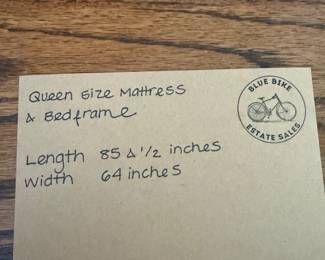 Queen Size Mattress
& Bedframe
Length 85 & 1/2 inches
Width 64 inches
BLUE BIKE
ESTATE SALES